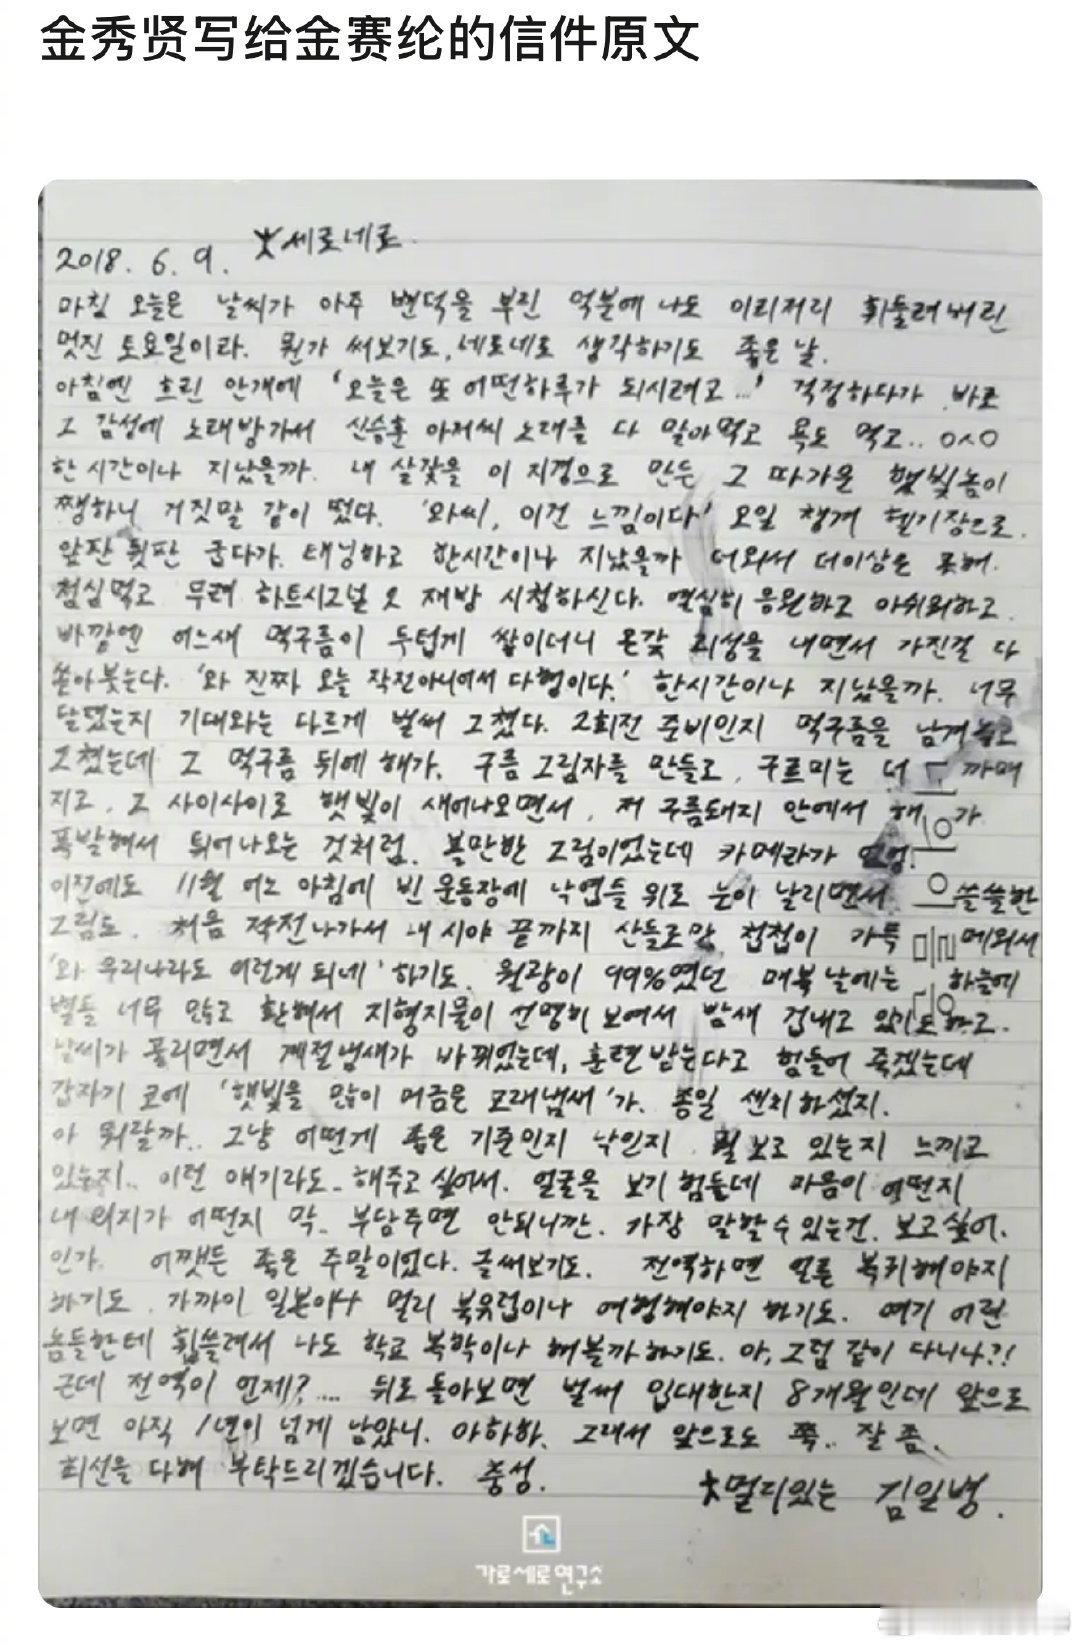 金秀贤写给金赛纶的信件原文
2018. 6. 9. 세로네로.
마침 오늘은 날씨가 아주 변덕을 부린 덕분에 나도 이리저리 휘둘려버린
멋진 토요일이라. 뭔가 써보기도, 세로네로 생각하기도 좋은 날.
아침엔 흐린 안개에 '오늘은 또 어떤하루가 되시려고...' 걱정하다가 바로
그 감성에 노래방가서 신승훈 아저씨 노래를 다 말아먹고 욕도 먹고.. ㅇㅅㅇ
한 시간이나 지났을까. 내 살갗을 이 지경으로 만든 그 따가운 햇빛놈이
쨍하니 거짓말 같이 떴다. '와씨, 이건 느낌이다' 오일 챙겨 헬기장으로.
앞판 뒷판 굽다가. 태닝하고 한시간이나 지났을까 더워서 더이상은 못해.
점심먹고 무려 하트시그널 2 재방 시청하신다. 열심히 응원하고 아쉬워하고.
바깥엔 어느새 먹구름이 두텁게 쌓이더니 온갖 괴성을 내면서 가진걸 다
쏟아붓는다. '와 진짜 오늘 작전아니어서 다행이다.' 한시간이나 지났을까. 너무
달랬는지 기대와는 다르게 벌써 그쳤다. 2회전 준비인지 먹구름을 남겨놓고
그쳤는데 그 먹구름 뒤에 해가. 구름 그림자를 만들고, 구르미는 더 까매
지고, 그 사이사이로 햇빛이 새어나오면서, 저 구름돼지 안에서 해가
폭발해서 튀어나오는 것처럼. 볼만한 그림이었는데 카메라가 없엉.
이전에도 11월 어느 아침에 빈 운동장에 낙엽들 위로 눈이 날리면서 쓸쓸한
그림도. 처음 작전나가서 내 시야 끝까지 산들로만 첩첩이 가득 메워서
'와 우리나라도 이렇게 되네' 하기도. 월광이 99%였던 매복날에는 하늘에
별들 너무 많고 환해서 지형지물이 선명히 보여서 밤새 겁내고 있기도하고.
날씨가 풀리면서 계절냄새가 바뀌었는데, 훈련받는다고 힘들어 죽겠는데
갑자기 코에 '햇빛을 많이 머금은 모래냄새'가. 종일 센치하셨지.
아 뭐랄까.. 그냥 어떻게 좋은 기준인지 낙인지 뭘 보고 있는지 느끼고
있는지.. 이런 얘기라도.. 해주고 싶어서. 얼굴을 보기 힘들데 마음이 어떤지
내 의지가 어떤지 막. 부담주면 안되니깐. 가장 말할수있는건. 보고싶어.
인가. 어쨌든 좋은 주말이었다. 글써보기도. 전역하면 얼른 복귀해야지
하기도. 가까이 일본이나 멀리 북유럽이나 여행해야지 하기도. 여기 어린
놈들한테 휩쓸려서 나도 학교 복학이나 해볼까하기도. 아, 그럼 같이 다니나?!
근데 전역이 언제?.... 뒤로 돌아보면 벌써 입대한지 8개월인데 앞으로
보면 아직 1년이 넘게 남았니. 아하하. 그래서 앞으로도 쭉.. 잘 좀.
최선을 다해 부탁드리겠습니다. 충성.
멀리있는 김일병.
가로세로연구소